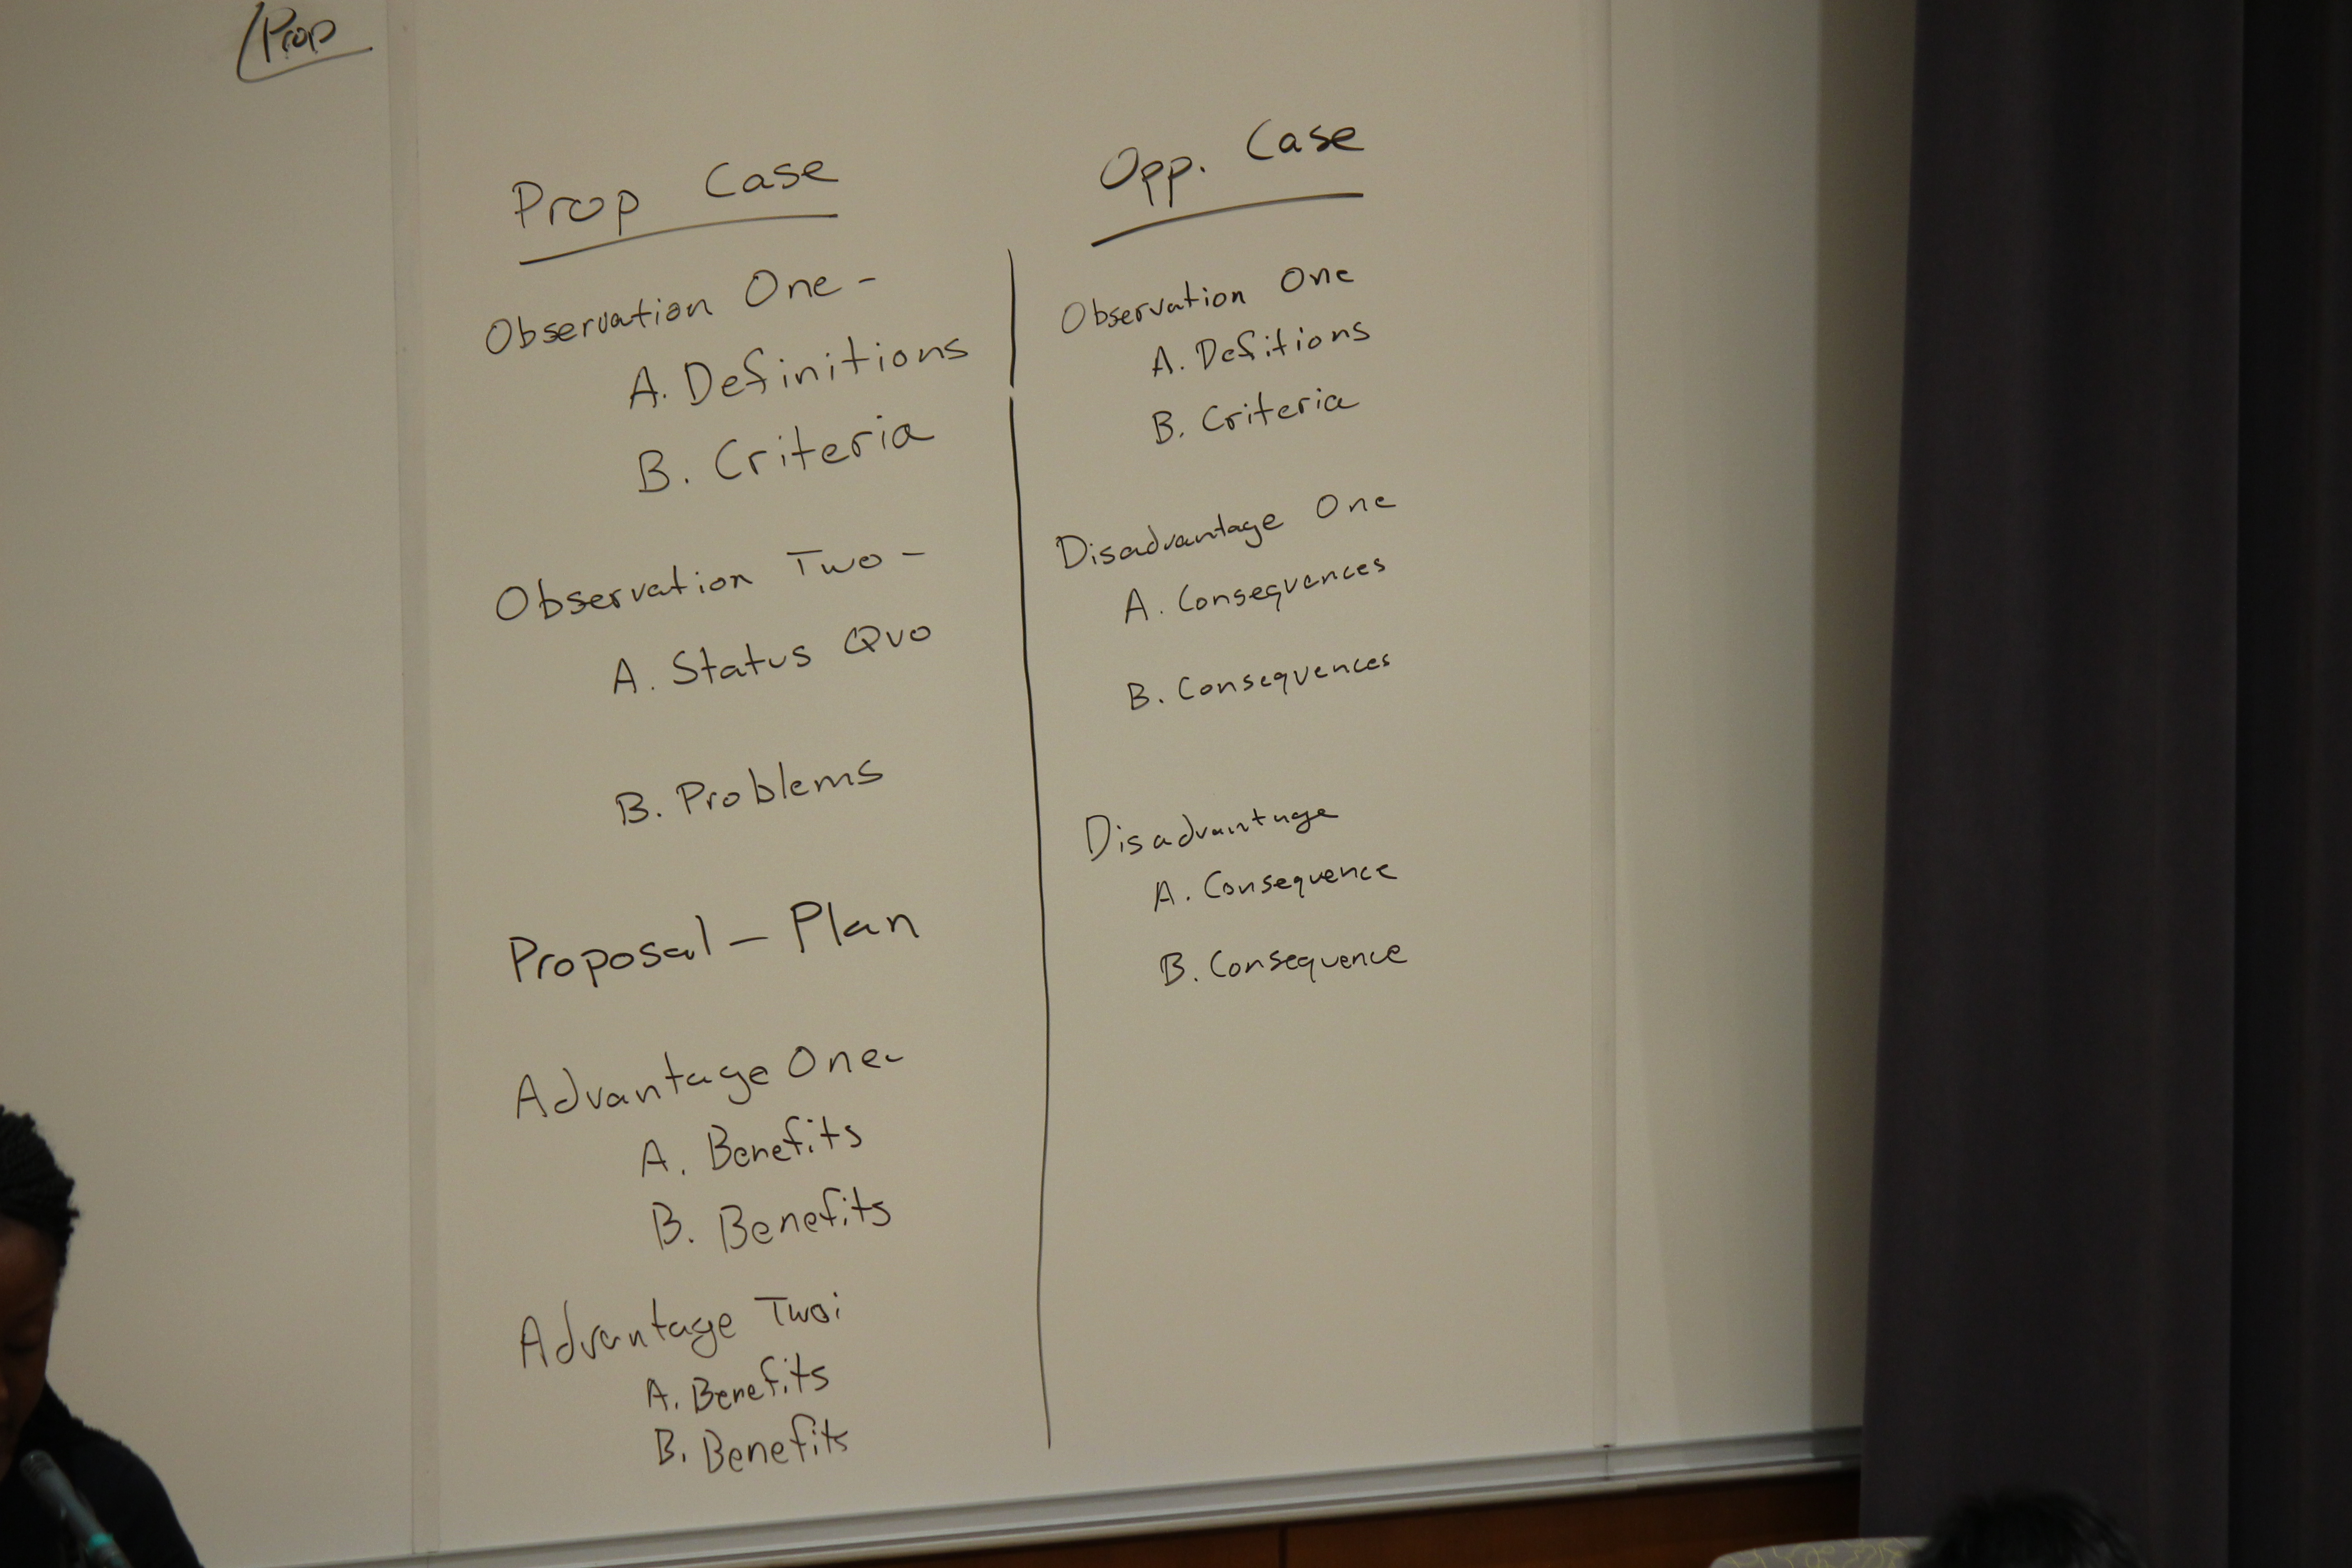 Prop
Prop Case
Observation One -
A. Definitions
B. Criteria
Observation Two -
A. Status Quo
B. Problems
Proposal - Plan
Advantage One-
A. Benefits
B. Benefits
Advantage Two:
A. Benefits
B. Benefits
Opp. Case
Observation One
A. Defitions
B. Criteria
Disadvantage One
A. Consequences
B. Consequences
Disadvantage
A. Consequence
B. Consequence